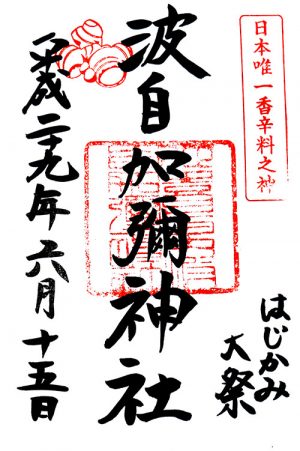 日本唯一香辛料之神
はじかみ
大祭
波自加彌神社
平成二十九年六月十五日